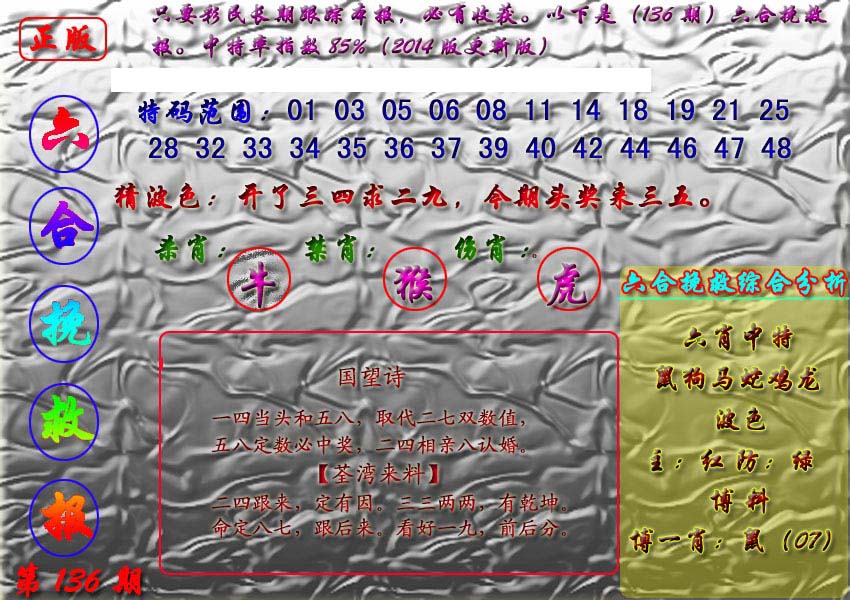 正版
只要彩民长期跟踪本报，必有收获。以下是（136期）六合挽救
报。中特率指数85%（2014版更新版）
六合挽救报
第136期
特码范围：01 03 05 06 08 11 14 18 19 21 25
28 32 33 34 35 36 37 39 40 42 44 46 47 48
猜波色：开了三四求二九，今期头奖来三五。
杀肖：牛 禁肖：猴 伤肖：虎
国望诗
一四当头和五八，取代二七双数值，
五八定数必中奖，二四相亲八认婚。
【荃湾来料】
二四跟来，定有因。三三两两，有乾坤。
命定八七，跟后来。看好一九，前后分。
六合挽救综合分析
六肖中特
鼠狗马蛇鸡龙
波色
主：红防：绿
博料
博一肖：鼠（07）